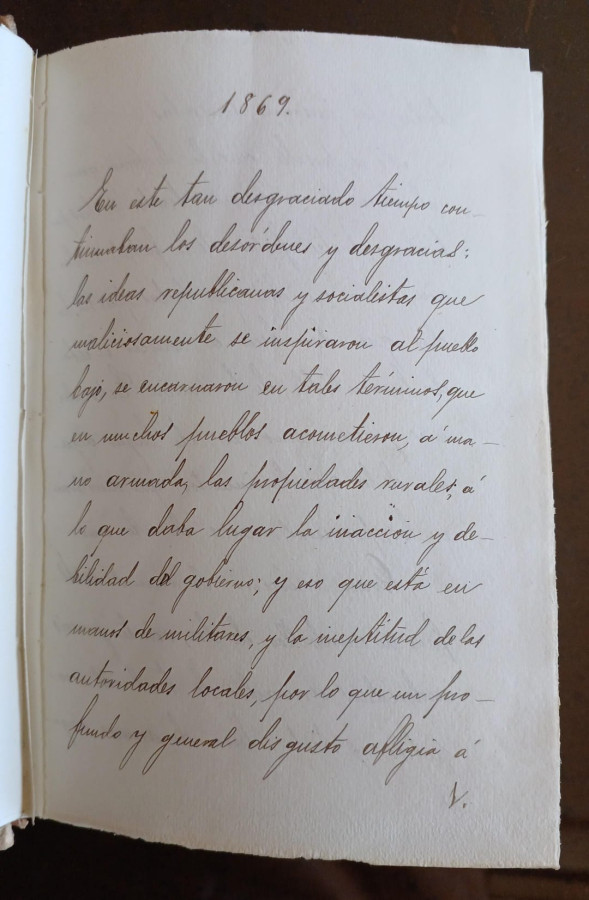 1869.
En este tan desgraciado tiempo con-
tinuaban los desórdenes y desgracias:
las ideas republicanas y socialistas que
maliciosamente se inspiraron al pueblo
bajo, se encarnaron en tales términos, que
en muchos pueblos acometieron, á ma-
no armada, las propiedades rurales, á
lo que daba lugar la inacción y de-
bilidad del gobierno; y eso que está en
manos de militares, y la ineptitud de las
autoridades locales, por lo que un pro-
fundo y general disgusto afligia á
V.